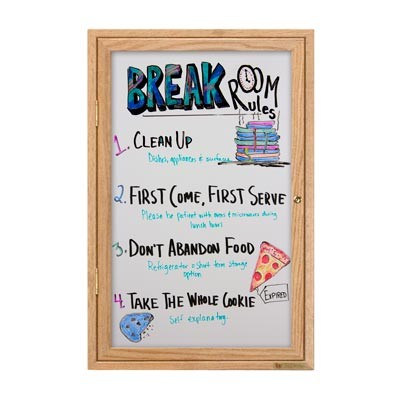 BREAK ROOM
Rules
1. CLEAN UP
Dishes, appliances & surfaces
2. FIRST COME, FIRST SERVE
Please be patient with ovens & microwaves during
lunch hours
3. DON'T ABANDON FOOD
Refrigerator a short term storage
option
EXPIRED
4. TAKE THE WHOLE COOKIE
Self explanatory.